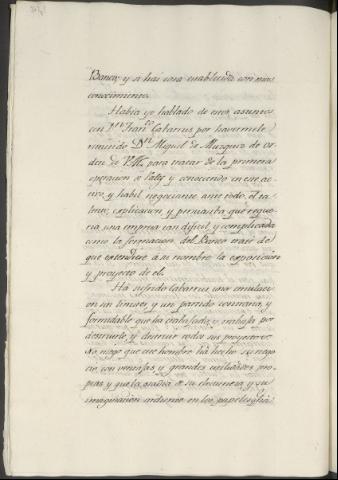 Banco, y si hai cosa establecida con más
conocimiento.
Había yo hablado de estos asuntos
con Dn. Franco. Cabarrus por havermele
remitido Dn. Miguel de Muzquiz de or
den de V.M. para tratar de la primera
operacion de Vales y conociendo en ese ac
tivo, y habil negociante ante todo, el ta
lento, explicacion y persuasiva que reque
ria una empresa tan dificil, y complicada
como la formacion del Banco traté de
que extendiese a su nombre la exposicion
y proyecto de el.
Ha sufrido Cabarrus una emulaci
on sin limites y un partido contrario, y
formidable que ha trabajado, y trabaja por
destruirle, y destruir todos sus proyectos
No niego que este hombre há hecho su nego
cio con ventajas y grandes utilidades pro
pias y que la osadia de su eloquencia y su
imaginacion ardiente en los papeles q.e há